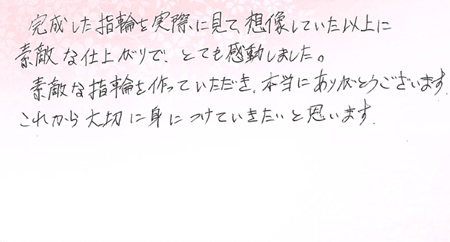 完成した指輪を実際に見て、想像していた以上に
素敵な仕上がりで、とても感動しました。
素敵な指輪を作っていただき、本当にありがとうございます。
これから大切に身につけていきたいと思います。